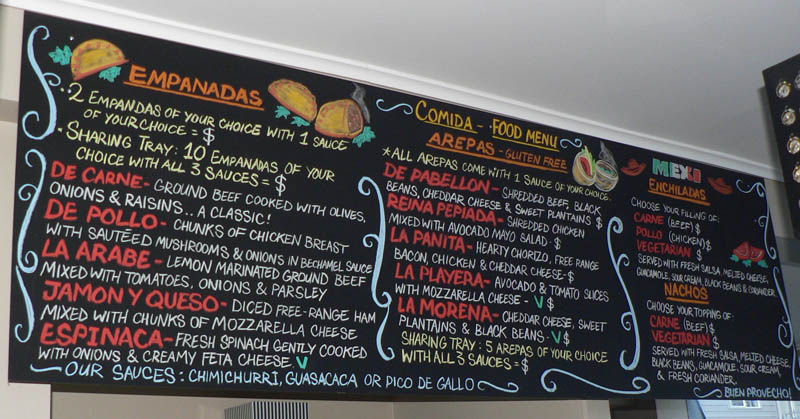 EMPANADAS
· 2 EMPANDAS OF YOUR CHOICE WITH 1 SAUCE
OF YOUR CHOICE = $
· SHARING TRAY: 10 EMPANADAS OF YOUR
CHOICE WITH ALL 3 SAUCES = $
DE CARNE - GROUND BEEF COOKED WITH OLIVES,
ONIONS & RAISINS... A CLASSIC!
DE POLLO - CHUNKS OF CHICKEN BREAST
WITH SAUTÉED MUSHROOMS & ONIONS IN BECHAMEL SAUCE
LA ARABE - LEMON MARINATED GROUND BEEF
MIXED WITH TOMATOES, ONIONS & PARSLEY
JAMON Y QUESO - DICED FREE-RANGE HAM
MIXED WITH CHUNKS OF MOZZARELLA CHEESE
ESPINACA - FRESH SPINACH GENTLY COOKED
WITH ONIONS & CREAMY FETA CHEESE. V
OUR SAUCES: CHIMICHURRI, GUASACACA OR PICO DE GALLO
COMIDA - FOOD MENU
AREPAS - GLUTEN FREE
*ALL AREPAS COME WITH 1 SAUCE OF YOUR CHOICE
DE PABELLON - SHREDDED BEEF, BLACK
BEANS, CHEDDAR CHEESE & SWEET PLANTAINS $
REINA PEPIADA - SHREDDED CHICKEN
MIXED WITH AVOCADO MAYO SALAD - $
LA PANITA - HEARTY CHORIZO, FREE RANGE
BACON, CHICKEN & CHEDDAR CHEESE - $
LA PLAYERA - AVOCADO & TOMATO SLICES
WITH MOZZARELLA CHEESE - V $
LA MORENA - CHEDDAR CHEESE, SWEET
PLANTAINS & BLACK BEANS - V $
SHARING TRAY: 5 AREPAS OF YOUR CHOICE
WITH ALL 3 SAUCES = $
MEXI
ENCHILADAS
CHOOSE YOUR FILLING OF:
CARNE (BEEF) $
POLLO (CHICKEN) $
VEGETARIAN $
SERVED WITH FRESH SALSA, MELTED CHEESE,
GUACAMOLE, SOUR CREAM, BLACK BEANS & CORIANDER
NACHOS
CHOOSE YOUR TOPPING OF:
CARNE (BEEF) $
VEGETARIAN $
SERVED WITH FRESH SALSA, MELTED CHEESE,
BLACK BEANS, GUACAMOLE, SOUR CREAM,
& FRESH CORIANDER.
BUEN PROVECHO!